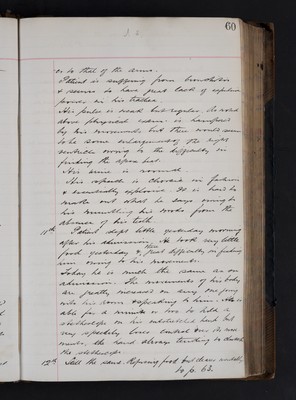 60
or to that of the arms.
Patient is suffering from bronchitis
& seems to have great lack of expulsive
power in his trachea.
His pulse is weak but regular, the
above physical exam. is hampered
by his movements but there would seem
to be some enlargement of the right
ventricle owing to the difficulty in
finding the apex beat.
His urine is normal.
His speech is choreic in fashion
& essentially explosive. It is hard to
make out what he says owing to
his mumbling his words from the
absence of his teeth.
11th Patient slept little yesterday morning
after his admission. He took very little
food yesterday & there was difficulty in feeding
him owing to his movements.
Today he is much the same as on
admission. The movements of his body
are greatly increased on any one going
into his room & speaking to him. He is
able for a minute or two to hold a
stethoscope on his outstretched hand but
very speedily loses control over its move
ments, the hand always tending to
the stethoscope.
12th Still the same. Refusing food but
to p. 63.